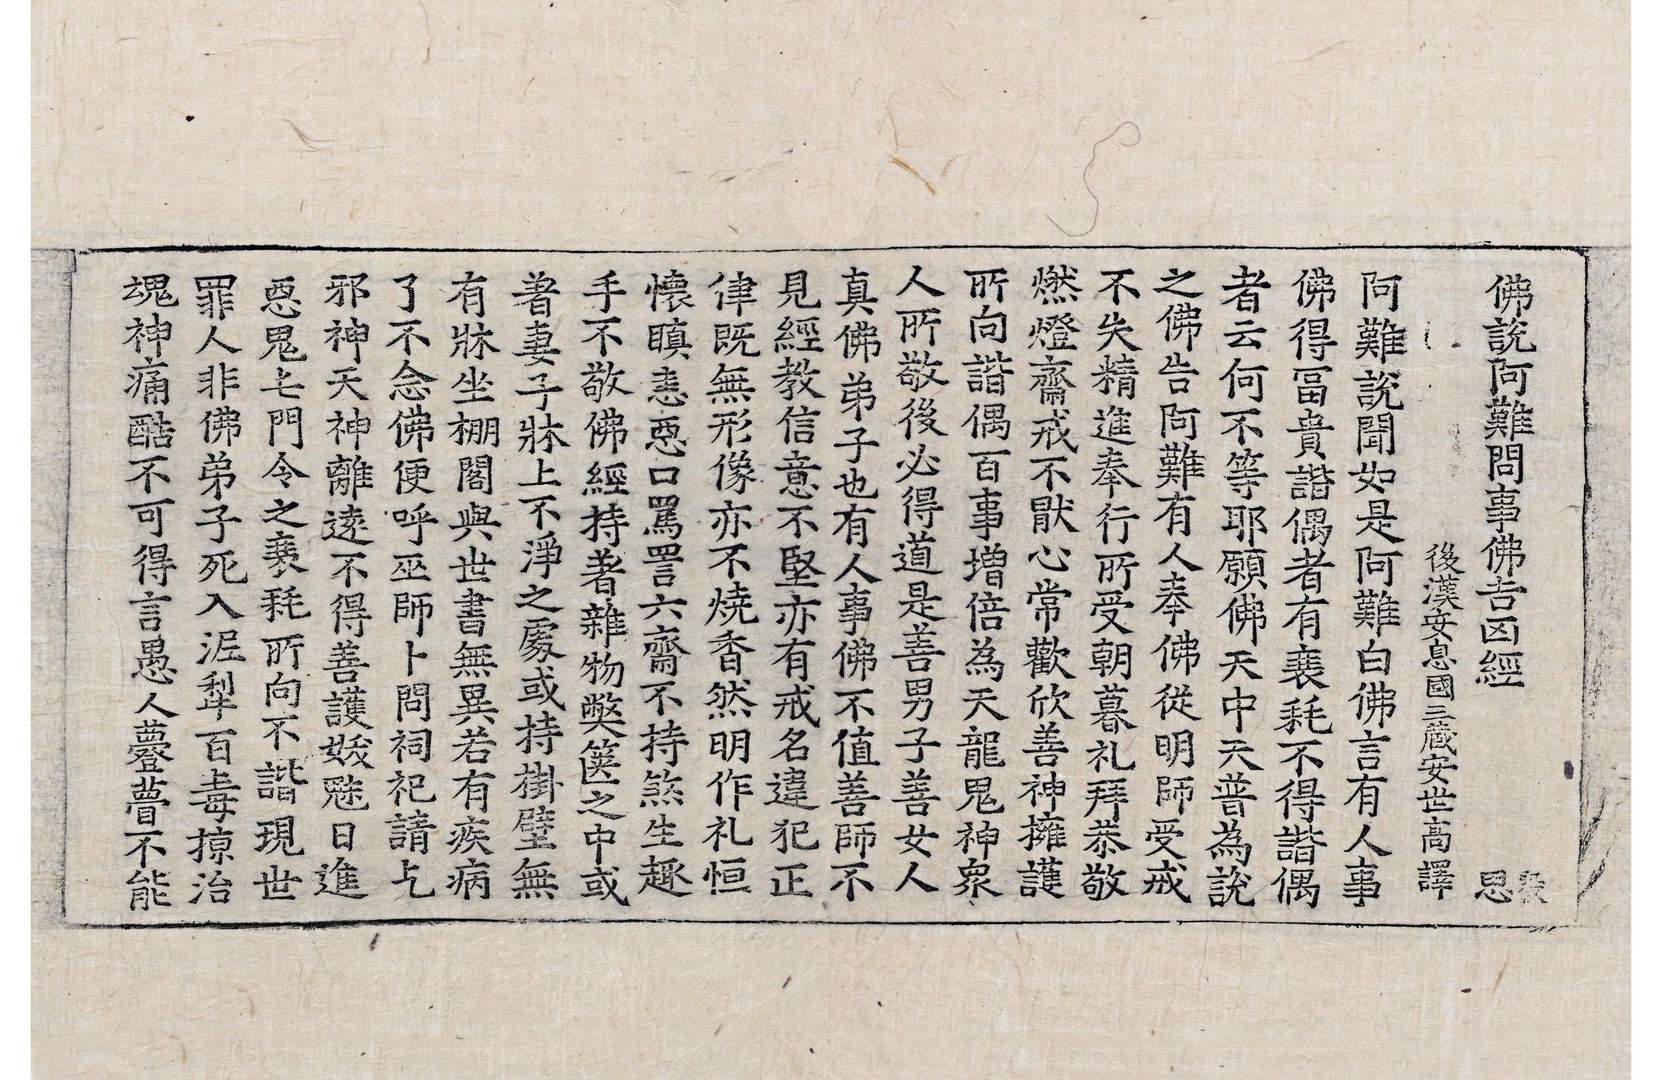 佛說阿難問事佛吉凶經 思
後漢安息國三藏安世高譯
阿難說聞如是阿難白佛言有人事
佛得冨貴諧偶者有衰耗不得諧偶
者云何不等耶願佛天中天普為說
之佛告阿難有人奉佛從明師受戒
不失精進奉行所受朝暮礼拜恭敬
燃燈齋戒不猒心常歡欣善神擁護
所向諧偶百事增倍為天龍鬼神衆
人所敬後必得道是善男子善女人
真佛弟子也有人事佛不值善師不
見經教信意不堅亦有戒名違犯正
律既無形像亦不燒香然明作礼恒
懷瞋恚惡口罵詈六齋不持煞生趣
手不敬佛經持著雜物弊篋之中或
著妻子牀上不淨之處或持掛壁無
有牀坐棚閣與世書無異若有疾病
了不念佛便呼巫師卜問祠祀請乞
邪神天神離遠不得善護妖魅日進
惡鬼屯門令之衰耗所向不諧現世
罪人非佛弟子死入泥犁百毒掠治
魂神痛酷不可得言愚人瞢瞢不能